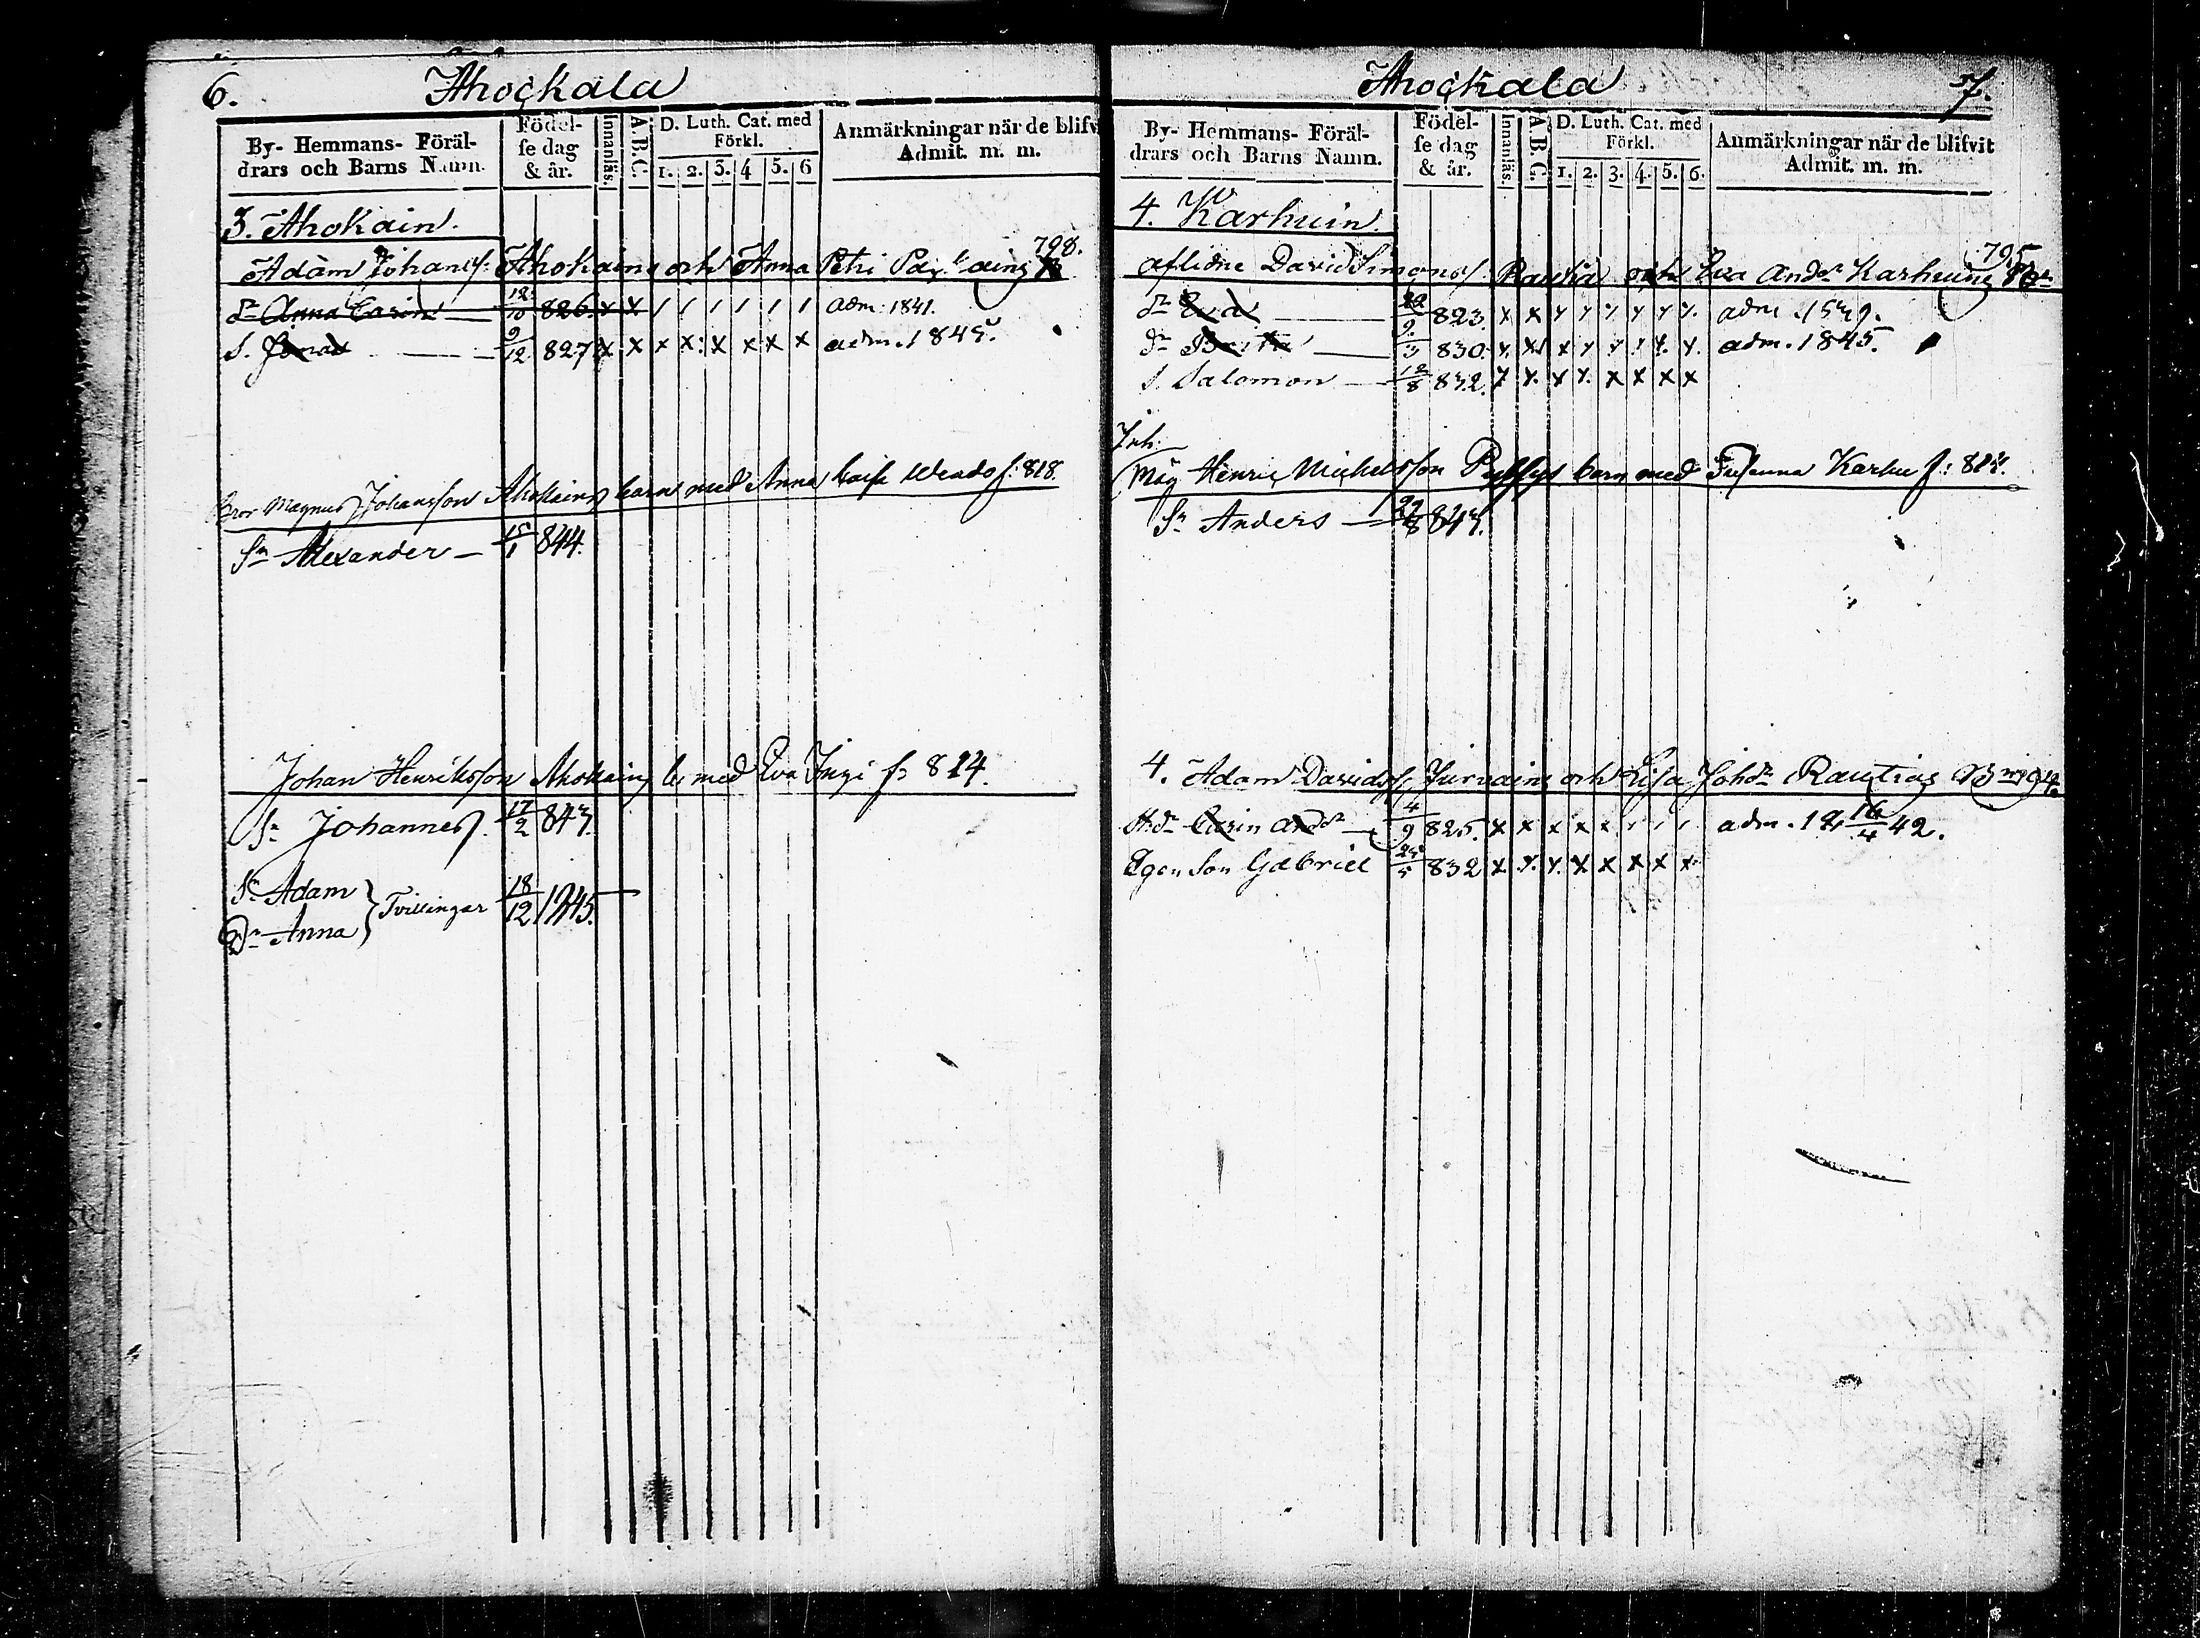 6. Ahockala
By- Hemmans- Föräl-
drars och Barns Namn.
Födel-
se dag
& år.
Innanläs.
A.B.C.
D. Luth. Cat. med
Förkl.
1. 2. 3. 4 5. 6
Anmärkningar när de blifv
Admit. m. m.
3. Ahokain.
798.
Adam Johans: Ahokaing och Anna Petri
dr Anna Carin 12/10 826. x x / / / / / / adm. 1841.
S. Jonas 9/12 827 x x x x x x x x adm. 1845.
Bror Magnus Johansson Ahokaing barn med Anna Caisa f: 818.
Sn Alexander 15/1 844.
Johan Henriksson Ahokaing b. med Eva Ingi f: 824.
Sn Johannes 17/2 843.
Sn Adam
Dr Anna } Tvillingar 18/12 1845.
Ahockala 7.
By- Hemmans- Föräl-
drars och Barns Namn.
Födel-
se dag
& år.
Innanläs.
A.B.C.
D. Luth. Cat. med
Förkl.
1. 2. 3. 4. 5. 6.
Anmärkningar när de blifvit
Admit. m. m.
4. Karhuin.
795
aflidne David Simons: Rautia och Eva Andr Karhuing
dr Eva 9. 823. x x y y y y y y. adm.
dr Brita 9/3 830. x x x y y y y. y. adm. 1845.
S. Salomon 12/8 832. y y. x y. x x x x
Inh:
Måg Henric Michelsson barn med Susanna Karhu f:
Sn Anders
4. Adam Davids: Jurvaing och Lisa Johdr Rautiag
Carin Andr 4/9 825. x x x x x / / / adm. 16/4 42.
Egen Son Gabriel 25/5 832 x y. y. x x x x x